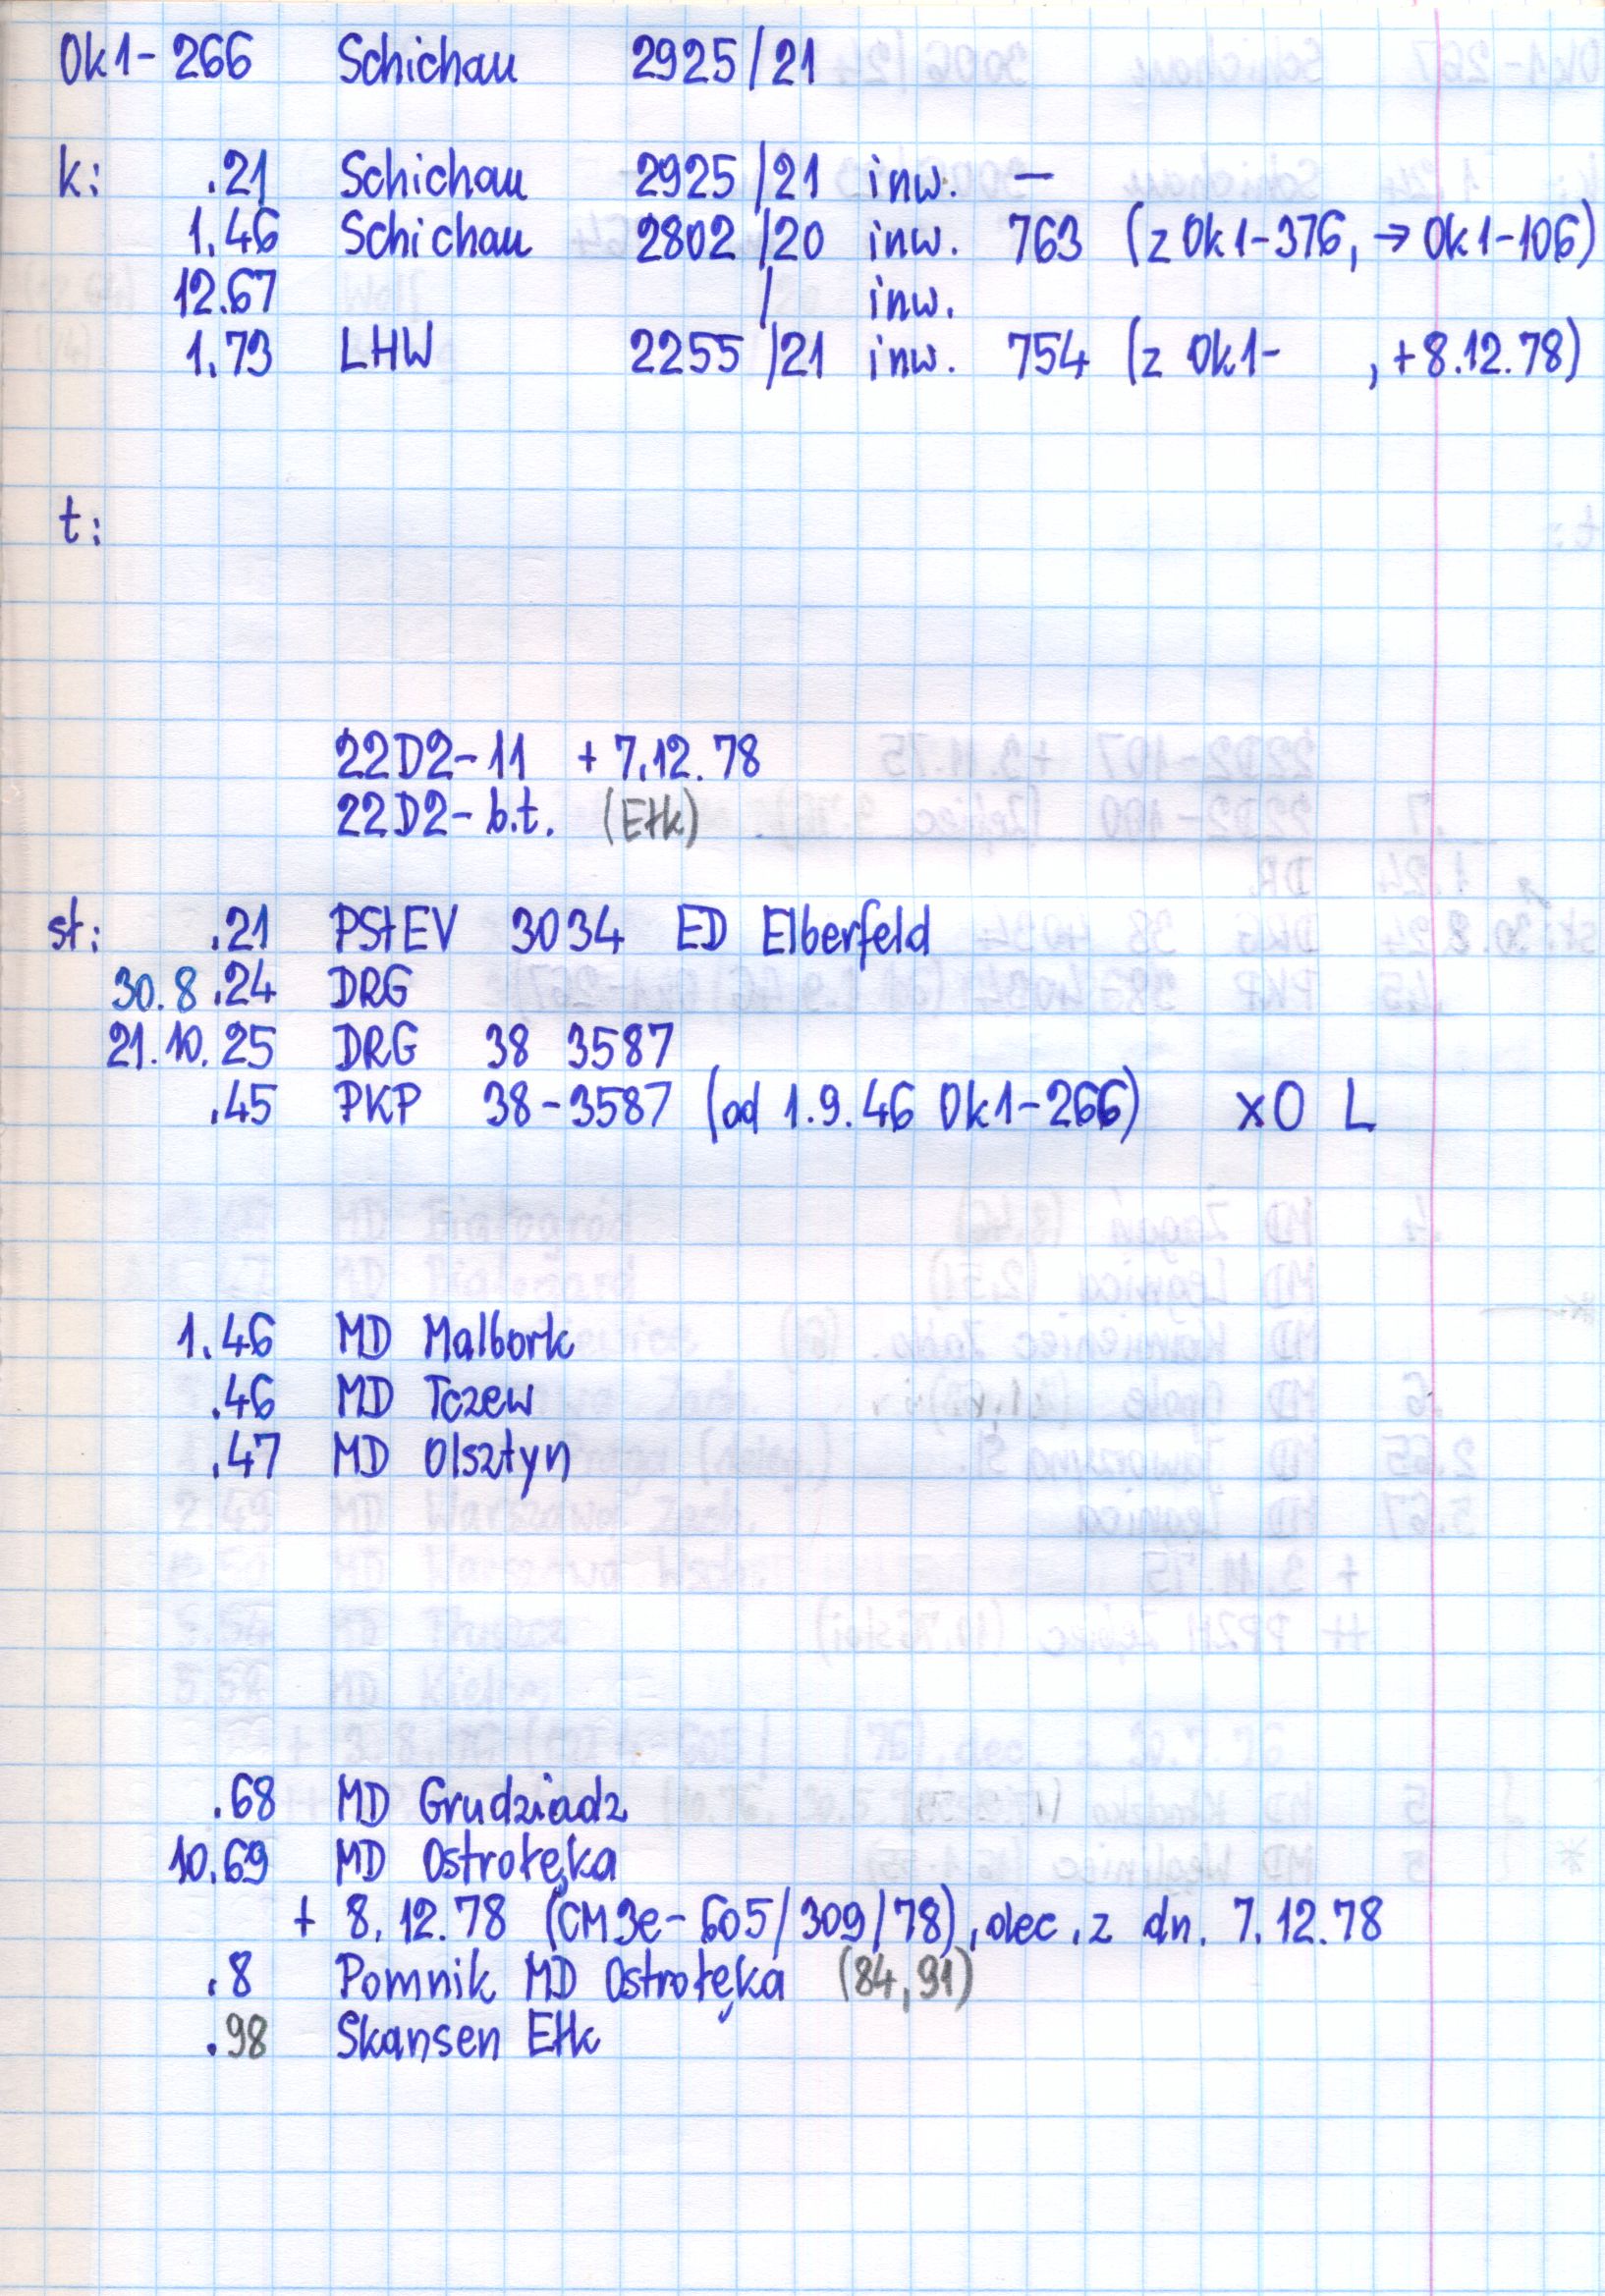 Ok1-266 Schichau 2925/21
k: .21 Schichau 2925/21 inw. —
1.46 Schichau 2802/20 inw. 763 (z Ok1-376, → Ok1-106)
12.67 / inw.
1.73 LHW 2255/21 inw. 754 (z Ok1- , +8.12.78)
t:
22D2-11 +7.12.78
22D2-b.t. (Ełk)
st: .21 PStEV 3034 ED Elberfeld
30.8.24 DRG
21.10.25 DRG 38 3587
.45 PKP 38-3587 (od 1.9.46 Ok1-266) xO L
1.46 MD Malbork
.46 MD Tczew
.47 MD Olsztyn
.68 MD Grudziadz
10.69 MD Ostrołęka
+ 8.12.78 (CM3e-605/309/78), dec. z dn. 7.12.78
.8 Pomnik MD Ostrołęka (84,91)
.98 Skansen Ełk